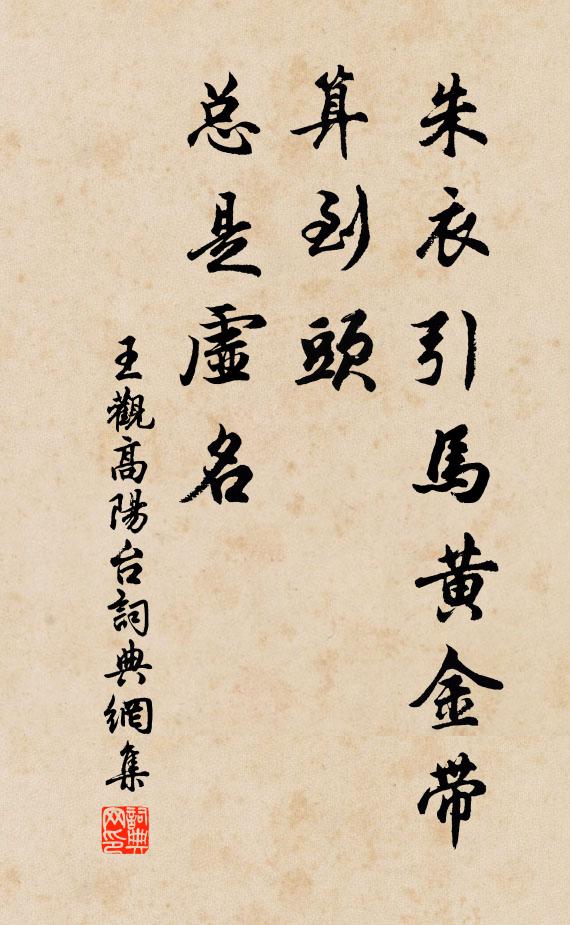 朱衣引馬黃金帶
算到頭
总是虛名
王觀高陽台詞典網集
詞典
网印